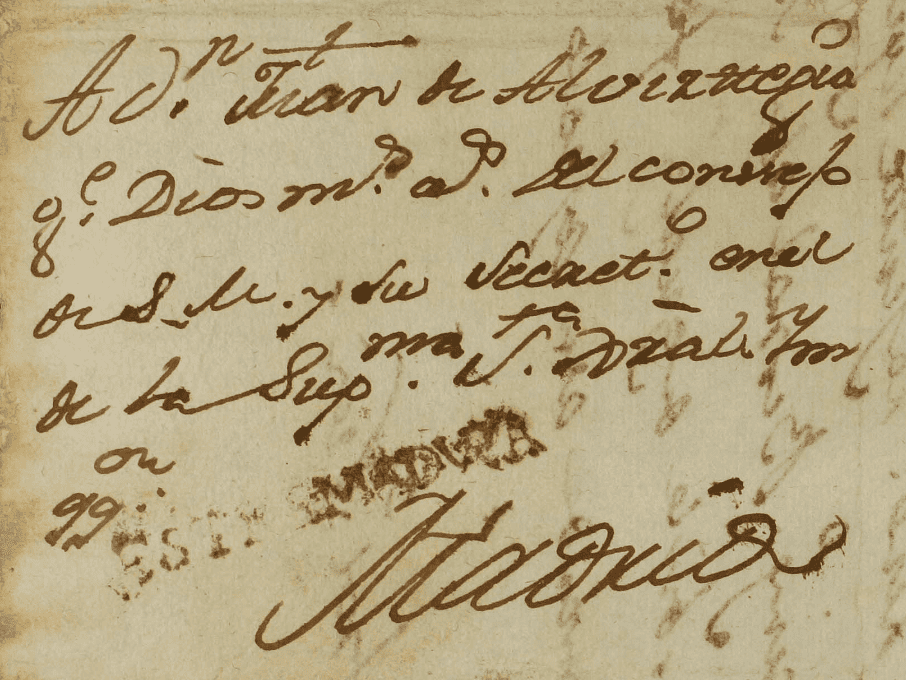 A Dn Juan de Alviztegui
qe Dios mde ads. del consejo
de S. M. y su Secreto. en el
de la Supma. Sta. Gral. Yn
qqon.
ESTREMADURA
Madrid